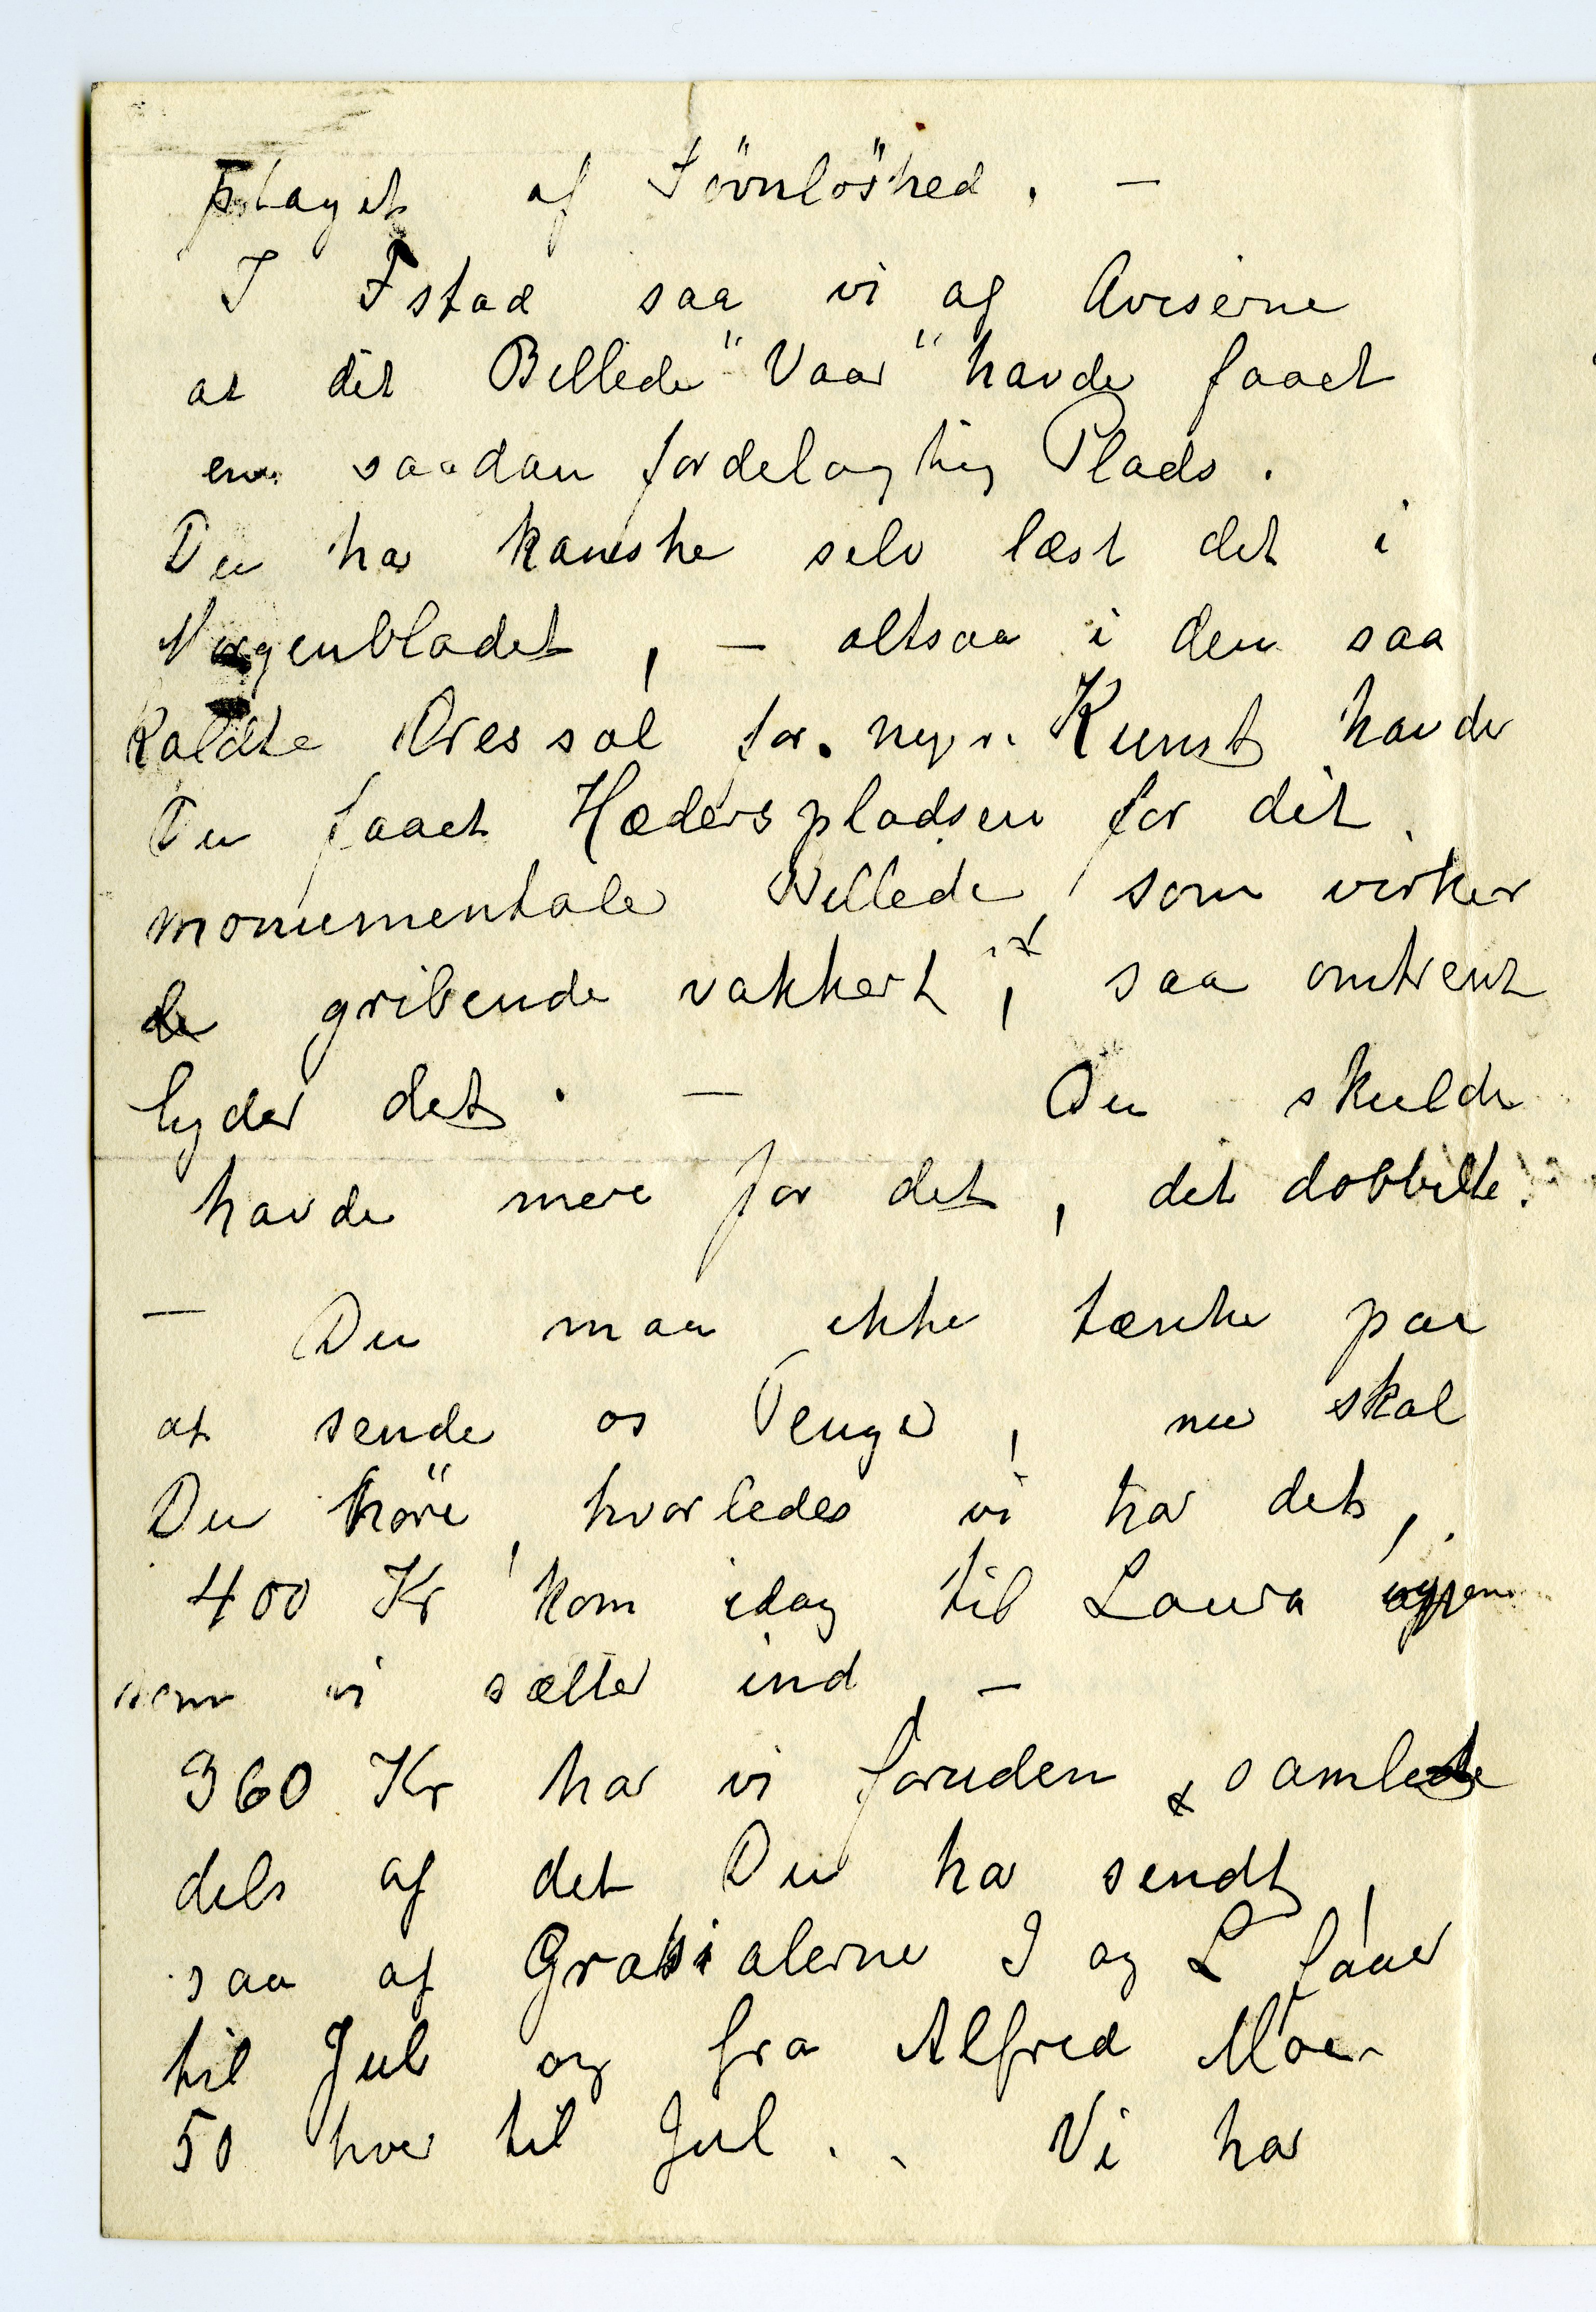 plaget af Sövnlöshed. —
I Fstad saa vi af Aviserne
at dit Billede "Vaar" havde faaet
en saadan fordelagtig Plads.
Du har kanske selv læst det i
Morgenbladet, — altsaa i den saa
kaldte Æressal for nyer. Kunst havde
Du faaet Hæderspladsen for dit
monumentale Billede, som virker
gribende vakkert, saa omtrent
lyder det. — Du skulde
havde mere for det, det dobbelte.
— Du maa ikke tænke paa
at sende os Penge, nu skal
Du höre, hvorledes vi har det,
400 Kr kom idag til Laura
som vi sætter ind, —
360 Kr har vi foruden, samlet
dels af det Du har sendt,
saa af Gratialerne I og L faaer
til Jul og fra Alfred Moe
50 hver til Jul. . Vi har